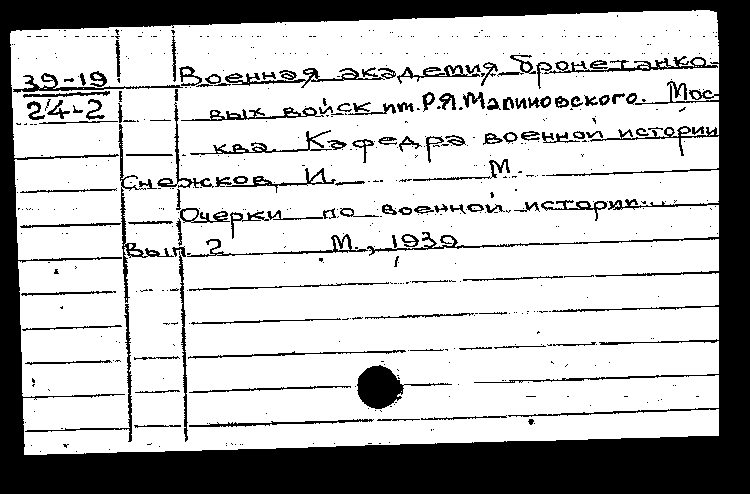 39-19 Военная академия бронетанко-
24-2 вых войск им. Р.Я. Малиновского. Мос-
ква. Кафедра военной истории
Снежков, И. М.
Очерки по военной истории...
Вып. 2 М., 1939